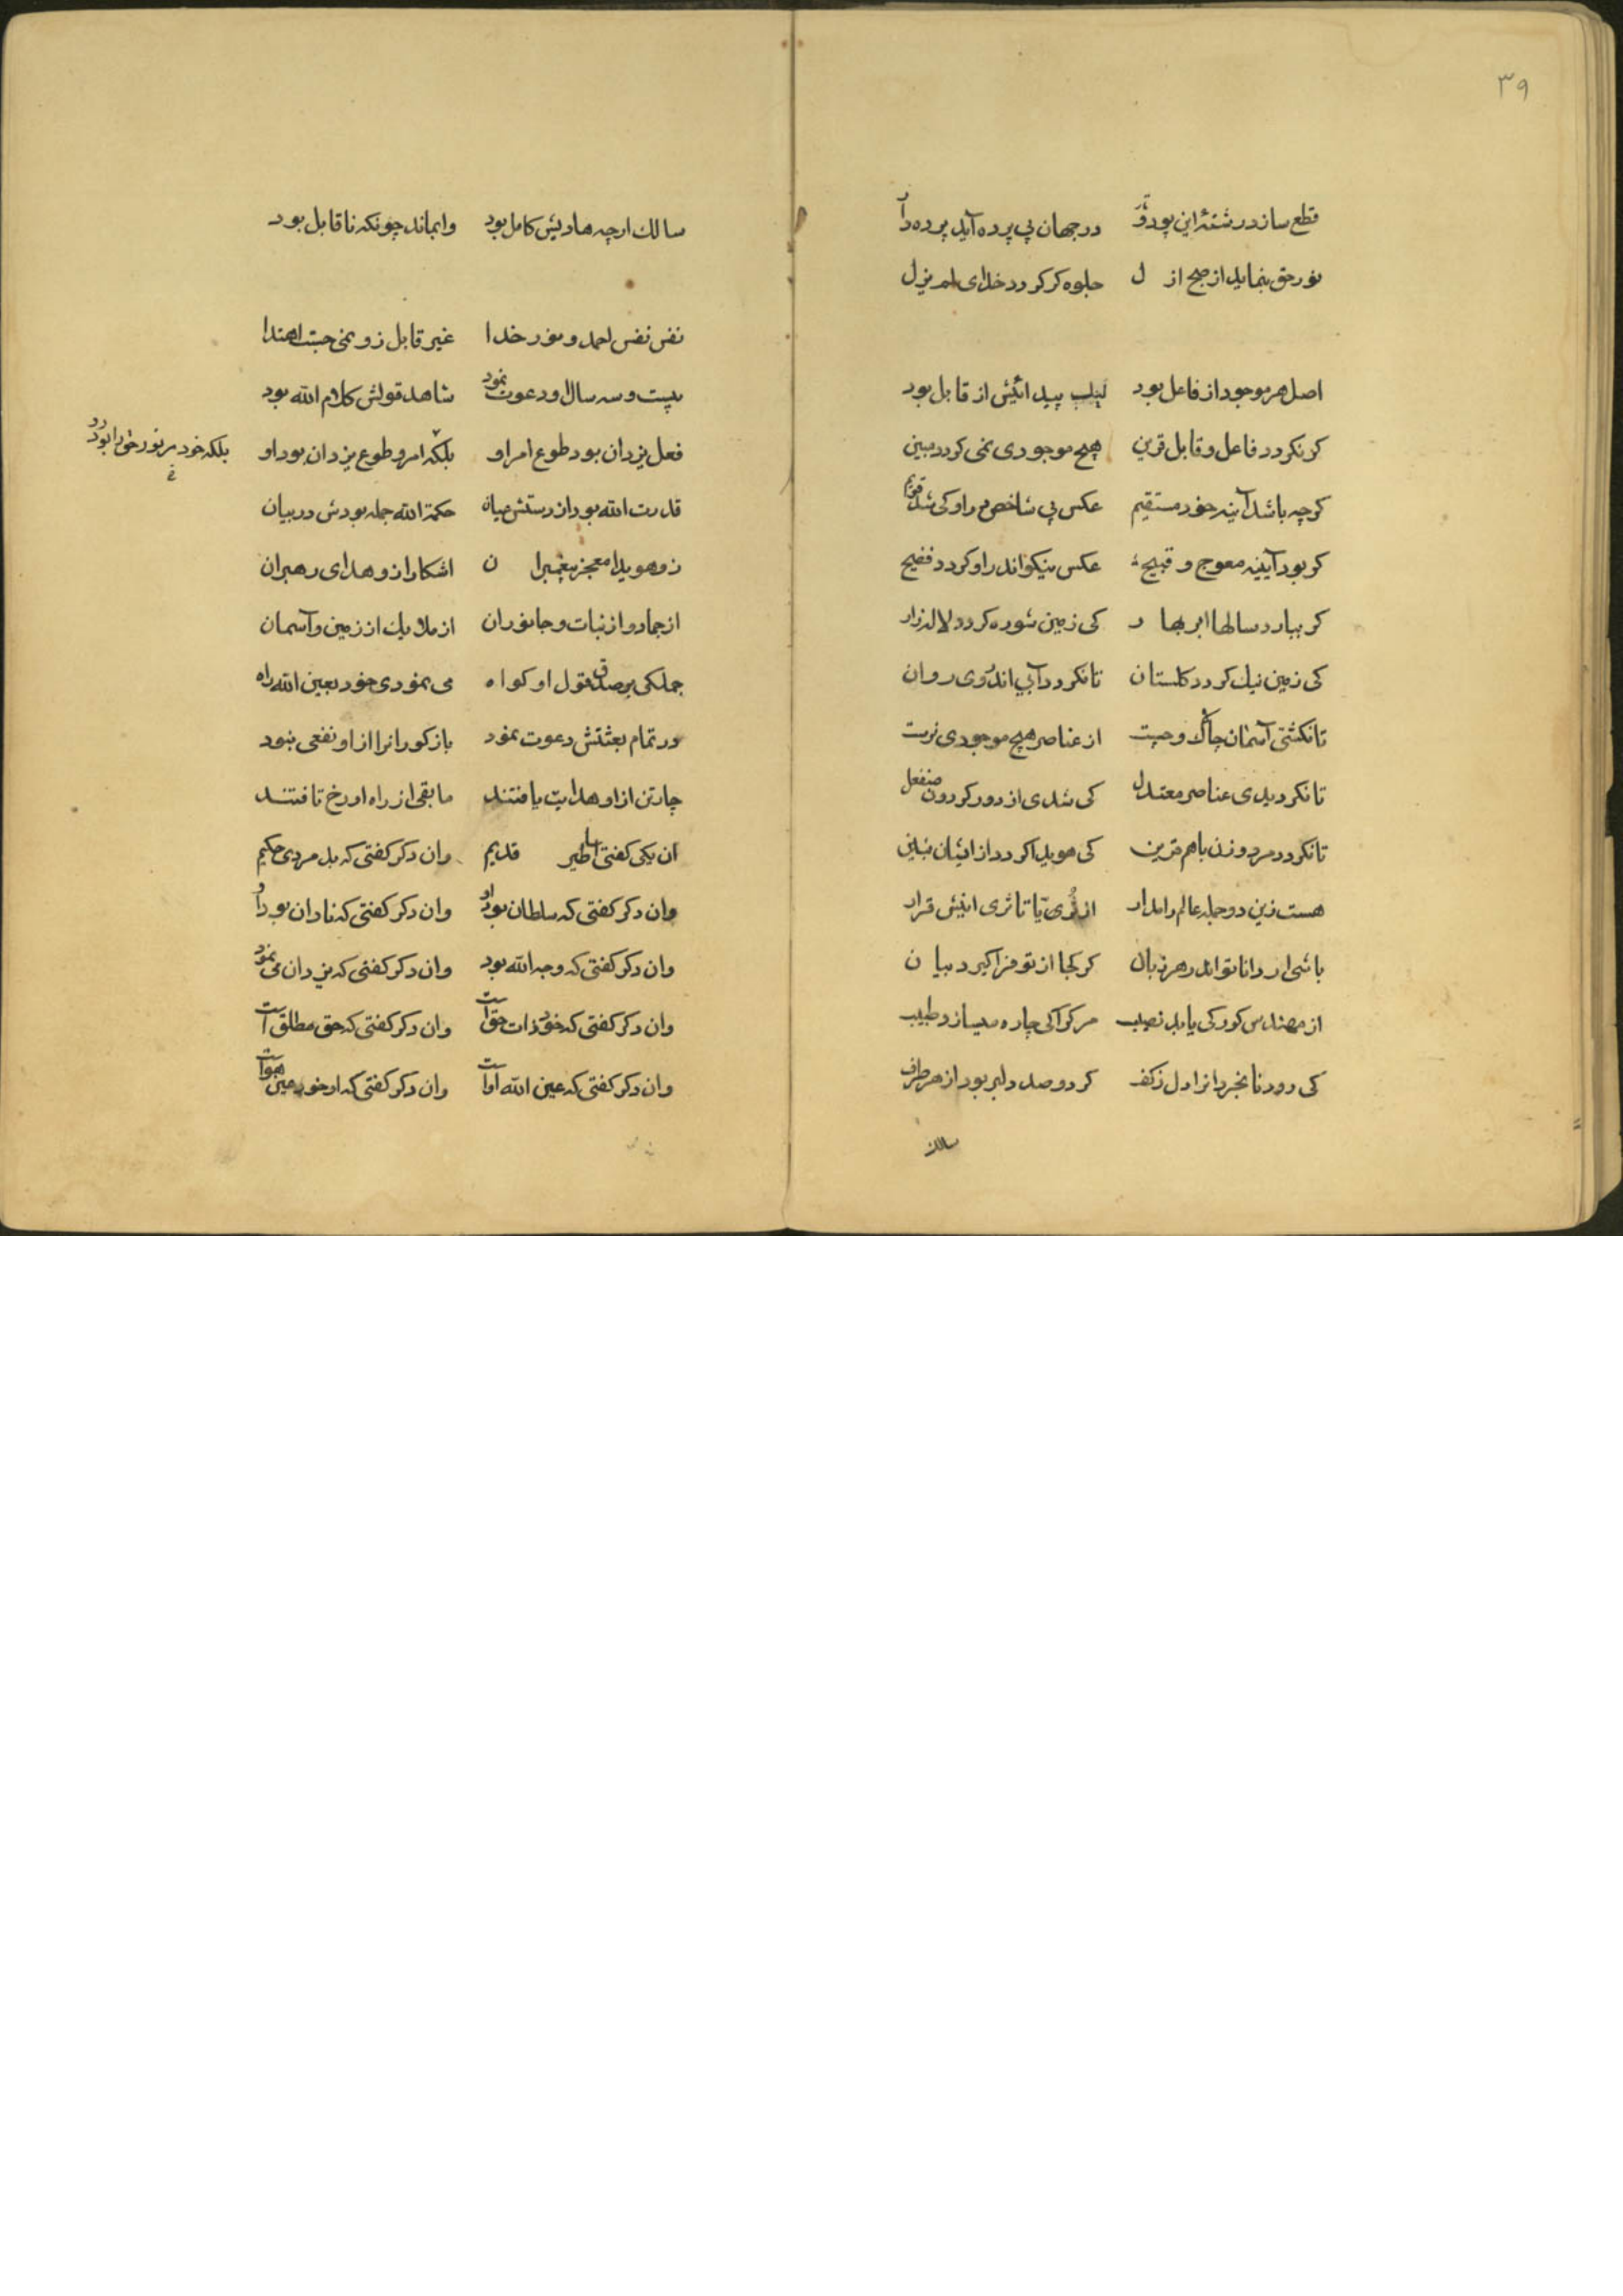 ۳۹
قطع سازد رشتهٔ این پود و تار در جهان بی پرده آید پرده دار
نور حق بنماید از صبح ازل جلوه کر کردد خدای لم یزل
اصل هر موجود از فاعل بود لیک پیدائیش از قابل بود
کر نکردد فاعل و قابل قرین هیچ موجودی نمی کردد مبین
کرچه باشد آینه خود مستقیم عکس بی شاخص در او کی شد قویم
کر بود آیینه معوج و قبیح عکس نیکو اندر او کردد فضیح
کر ببارد سالها ابر بهار کی زمین شوره کردد لاله زار
کی زمین نیک کردد کلستان تا نکردد آبی اندر وی روان
تا نکشتی آسمان چالاک و چست از عناصر هیچ موجودی نرست
تا نکردیدی عناصر معتدل کی شدی از دور کردون منفعل
تا نکردد مرد و زن با هم قرین کی هویدا کردد از ایشان بنین
هست زین دو جمله عالم را مدار از ثریا تا ثری اینش قرار
باشی ار دانا تو اندر هر زبان کر کجا از تو فرا کیرد بیان
از مهندس کور کی یابد نصیب مرکرا کی چاره میسازد طبیب
کی رود نابخردانرا دل ز کف کر دو صد دلبر بود از هر طرف
سالک
سالک ار چه هادیش کامل بود وابماند چونکه ناقابل بود
نفس نفس احمد و نور خدا غیر قابل زو نمی جست اهتدا
بیست و سه سال او دعوت نمود شاهد قولش کلام الله بود
فعل یزدان بود طوع امر او بلکه امر و طوع یزدان بود او
بلکه خود مر نور حق را بود رو
قدرت الله بود از دستش میان حکمة الله جمله بودش در بیان
زو هویدا معجز پیغمبران اشکارا زو هدای رهبران
از جماد و از نبات و جانوران از ملایک از زمین و آسمان
جملکی بر صدق قول او کواه می نمودی خود بعین الله راه
در تمام بعثتش دعوت نمود باز کورانرا از او نفعی نبود
چار تن از او هدایت یافتند مابقی از راه او رخ تافتند
ان یکی کفتی اساطیر قدیم وان دکر کفتی که بد مردی حکیم
وان دکر کفتی که سلطان بود او وان دکر کفتی که نادان بود او
وان دکر کفتی که وجه الله بود وان دکر کفتی که یزدان می نمود
وان دکر کفتی که خود ذات حق است وان دکر کفتی که حق مطلق است
وان دکر کفتی که عین الله اواست وان دکر کفتی که او خود عین هو است